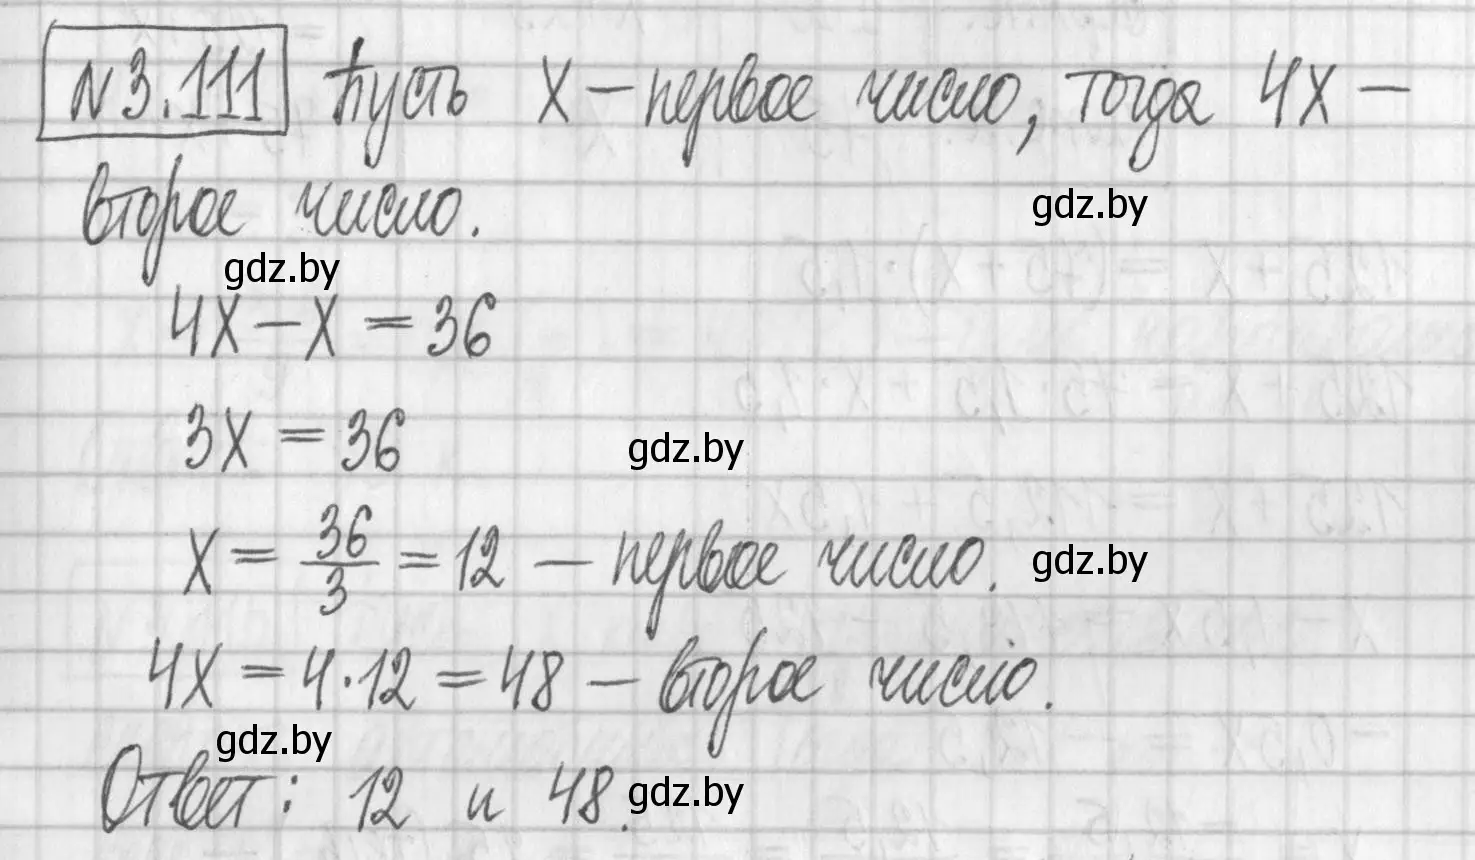 №3.111 Пусть x – первое число, тогда 4x –
второе число.
gdz.by
gdz.by
4x – x = 36
3x = 36
gdz.by
x = 36/3 = 12 – первое число.
gdz.by
4x = 4·12 = 48 – второе число.
gdz.by
Ответ: 12 и 48.
gdz.by